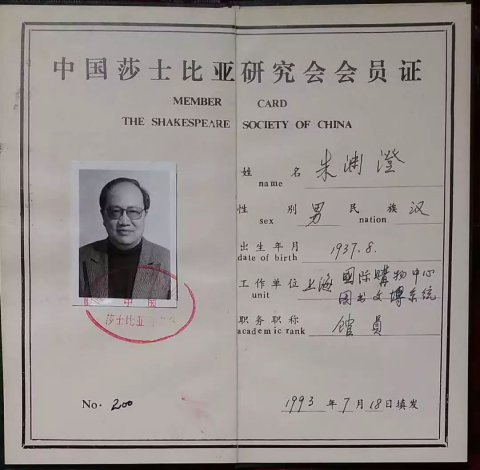 中国莎士比亚研究会会员证
MEMBER CARD
THE SHAKESPEARE SOCIETY OF CHINA
姓 名 朱渊澄
name
性 别 男 民 族 汉
sex nation
出生年月 1937.8.
date of birth
工作单位 上海國际購物中心
unit 图书文博系统
职务职称 馆員
academic rank
中国
莎士比亚
No. 200
1993 年 7 月 18 日填发